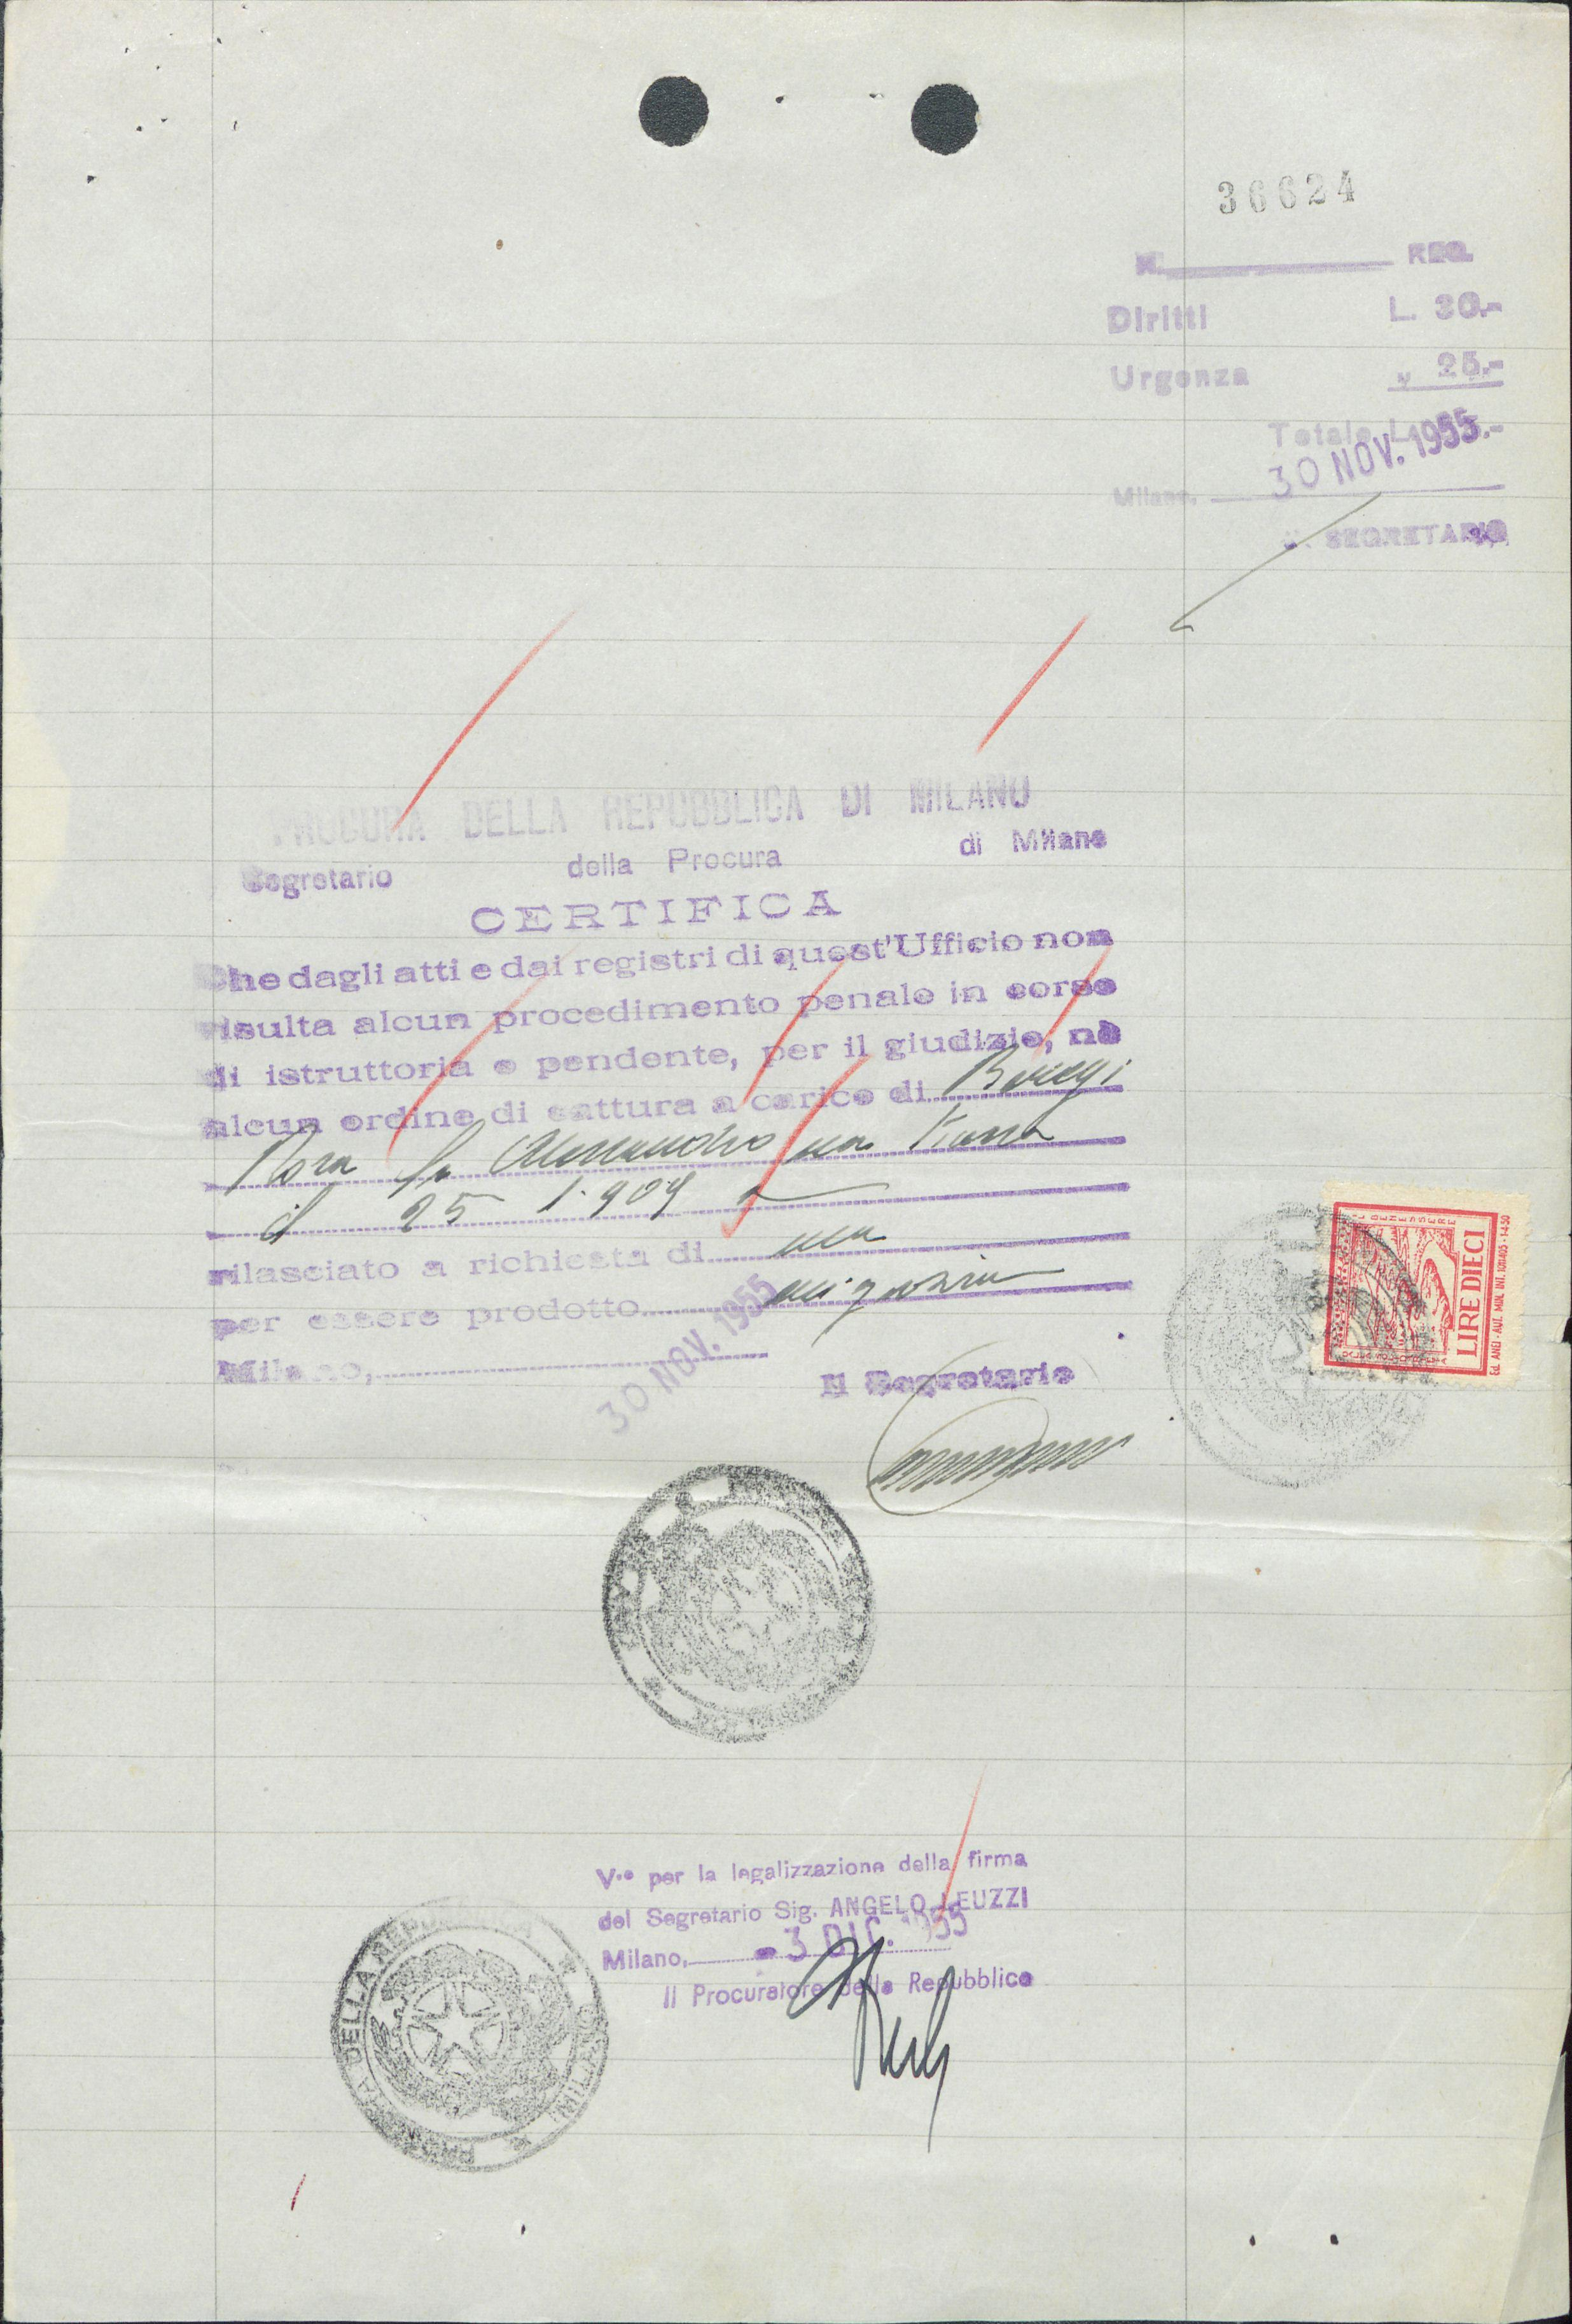 36624
N. REG.
Diritti L. 30.-
Urgenza „ 25.-
Totale L. 55.-
30 NOV. 1955
Milano,
IL SEGRETARIO
PROCURA DELLA REPUBBLICA DI MILANO
Segretario della Procura di Milano
CERTIFICA
Che dagli atti e dai registri di quest'Ufficio non
risulta alcun procedimento penale in corso
di istruttoria o pendente, per il giudizio, nè
alcun ordine di cattura a carico di
fu Alessandro
il 25 1. 909
rilasciato a richiesta di
per essere prodotto
Milano, 30 NOV. 1955
Il Segretario
LIRE DIECI
V.° per la legalizzazione della firma
del Segretario Sig. ANGELO LEUZZI
Milano, - 3 DIC. 1955
Il Procuratore della Repubblica
DELLA REPUBBLICA